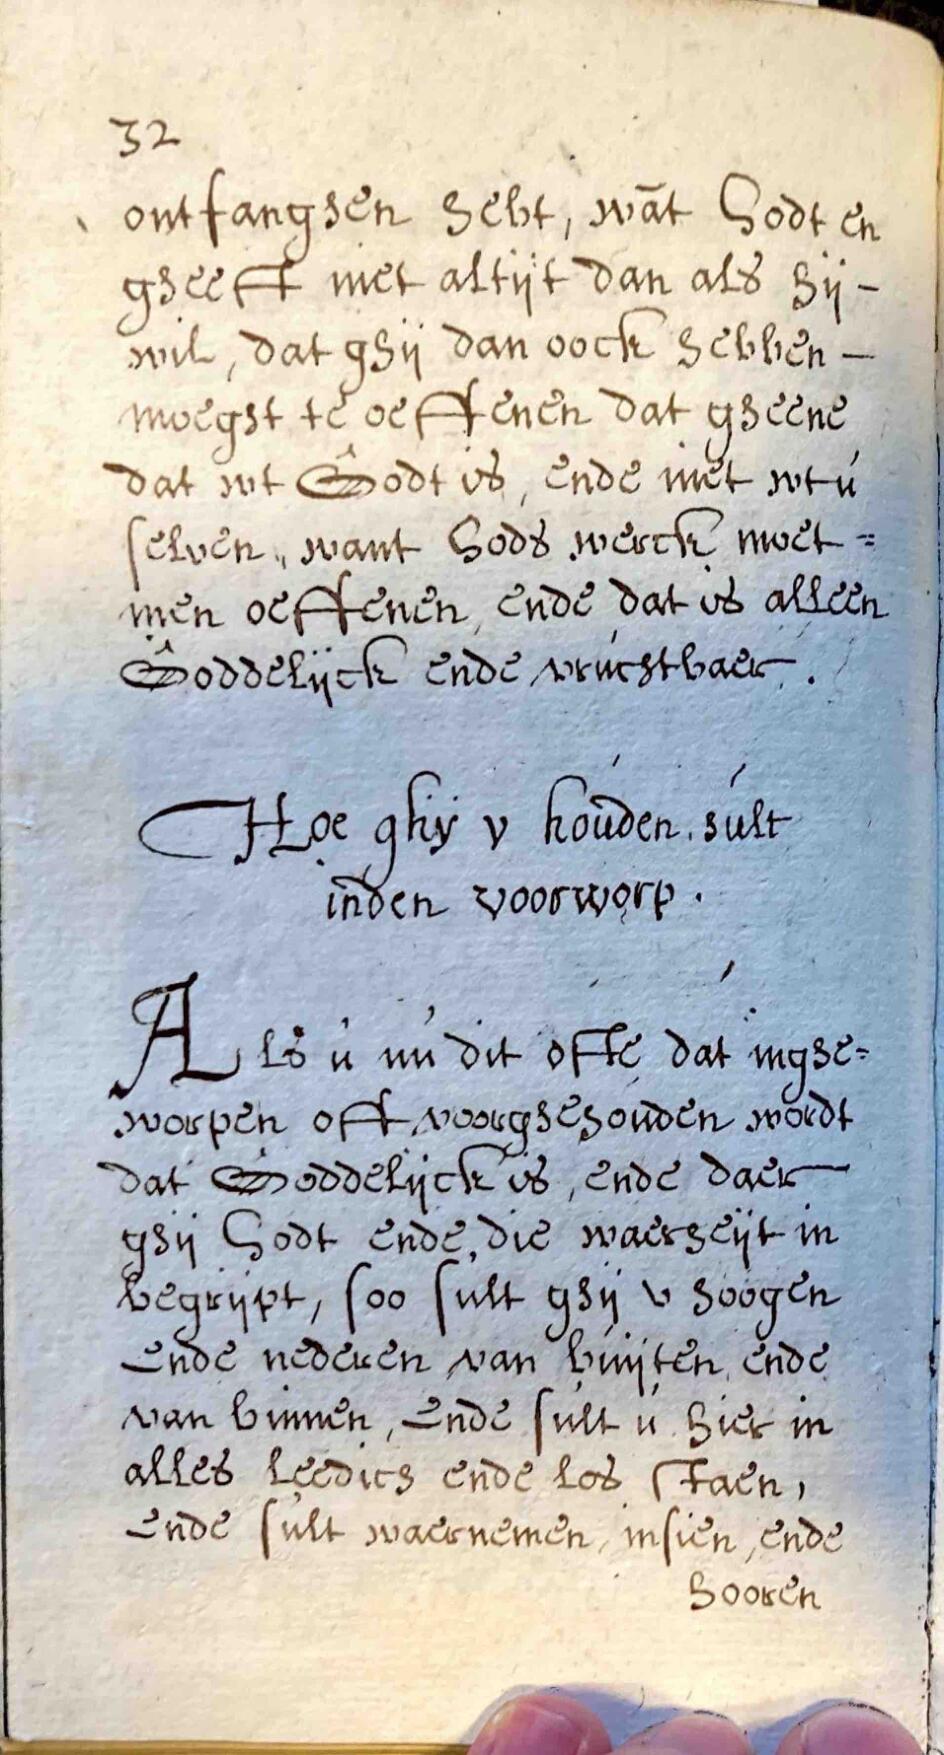 32
ontfanghen hebt, wāt Godt en
gheeft niet altijt dan als hij -
wil, dat ghij dan oock hebben -
moeght te oeffenen dat gheene
dat wt Godt is, ende niet wt ú
selven, want Gods werck moet =
men oeffenen, ende dat is alleen
Goddelijck ende vrúchtbaer.
Hoe ghy v houden súlt
inden voorworp.
Als ú nú dit ofte dat inghe=
worpen oft voorghehouden wordt
dat Goddelijck is, ende daer
ghij Godt ende die waerheijt in
begrijpt, soo súlt ghij v hoogen
Ende nederen van búijten ende
van binnen, Ende súlt ú hier in
alles leedich ende los staen,
Ende súlt waernemen, insien, ende
hooren